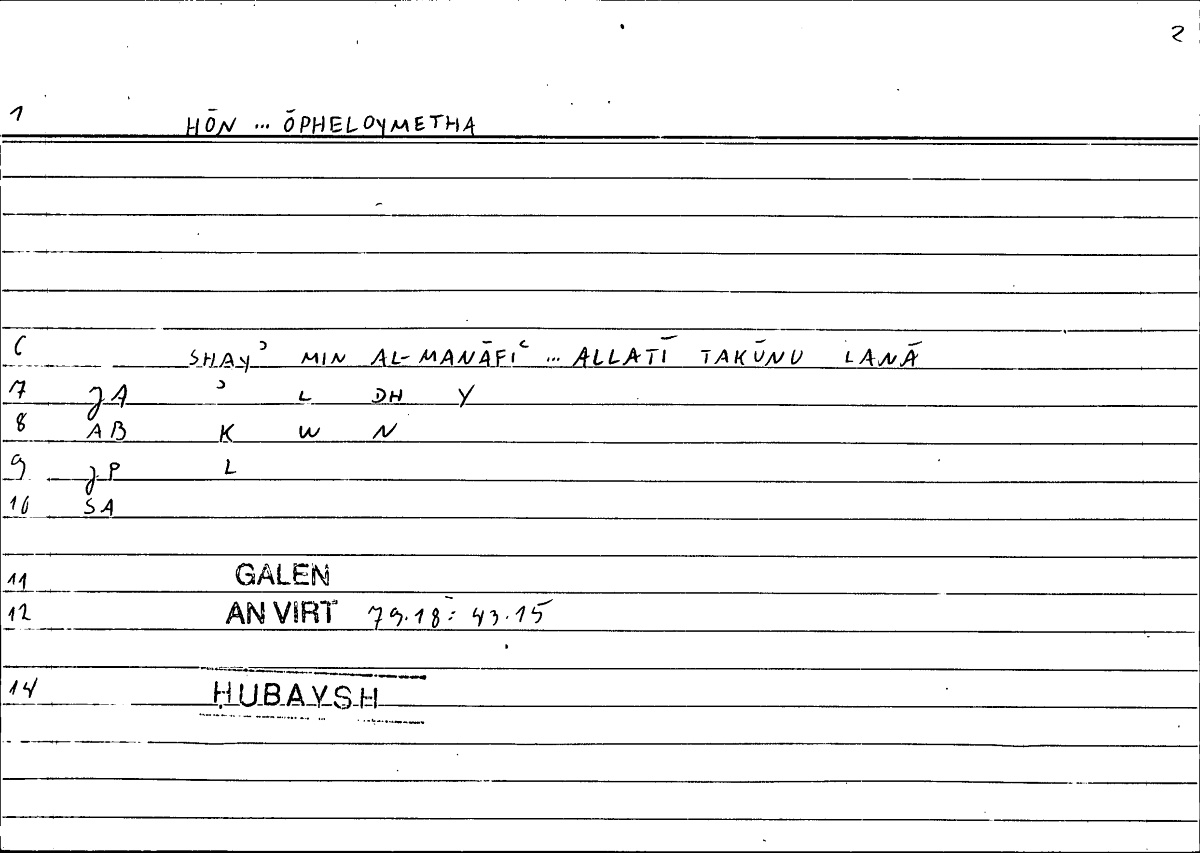 2
1 HŌN ... ŌPHELOYMETHA
6 SHAYʾ MIN AL-MANĀFIʿ ... ALLATĪ TAKŪNU LANĀ
7 JA ʾ L DH Y
8 AB K W N
9 JP L
10 SA
11 GALEN
12 AN VIRT 79.18 = 43.15
14 ḤUBAYSH